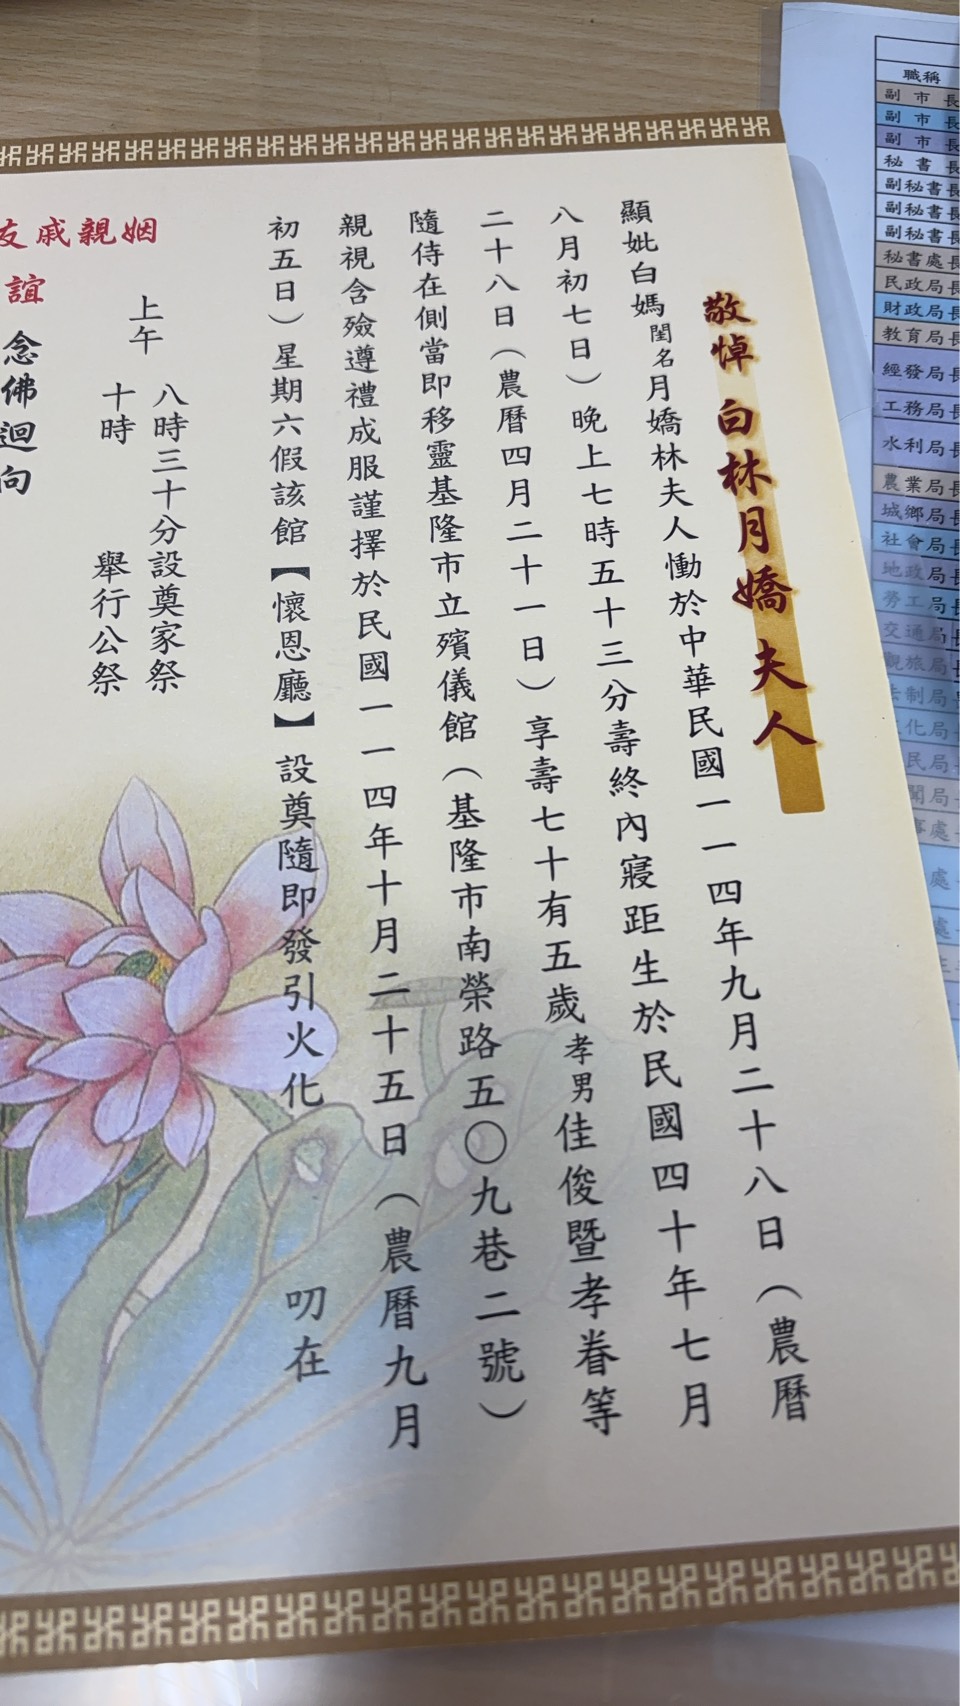 敬悼 白林月嬌 夫人
顯妣白媽閨名月嬌林夫人慟於中華民國一一四年九月二十八日（農曆
八月初七日）晚上七時五十三分壽終內寢距生於民國四十年七月
二十八日（農曆四月二十一日）享壽七十有五歲孝男佳俊暨孝眷等
隨侍在側當即移靈基隆市立殯儀館（基隆市南榮路五〇九巷二號）
親視含殮遵禮成服謹擇於民國一一四年十月二十五日（農曆九月
初五日）星期六假該館【懷恩廳】設奠隨即發引火化 叨在
上午 八時三十分設奠家祭
十時 舉行公祭
姻親戚友
誼
念佛迴向
職稱
副市長
副市長
副市長
秘書長
副秘書長
副秘書長
副秘書長
秘書處長
民政局長
財政局長
教育局長
經發局長
工務局長
水利局長
農業局長
城鄉局長
社會局長
地政局長
勞工局長
交通局長
觀旅局長
制局
化局
民局
聞局
事處
處
處